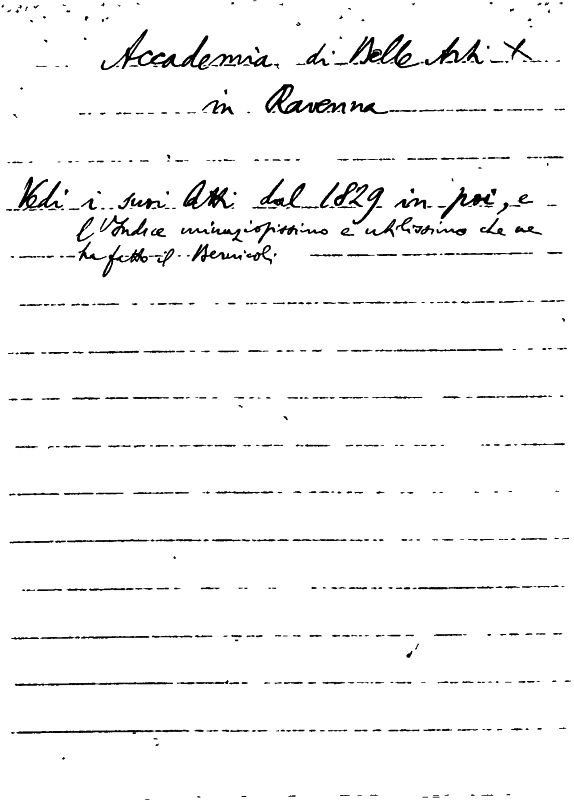 Accademia di Belle Arti X
in Ravenna
Vedi i suoi Atti dal 1829 in poi, e
l'Indice minuziosissimo e utilissimo che ne
ha fatto il Bernicoli